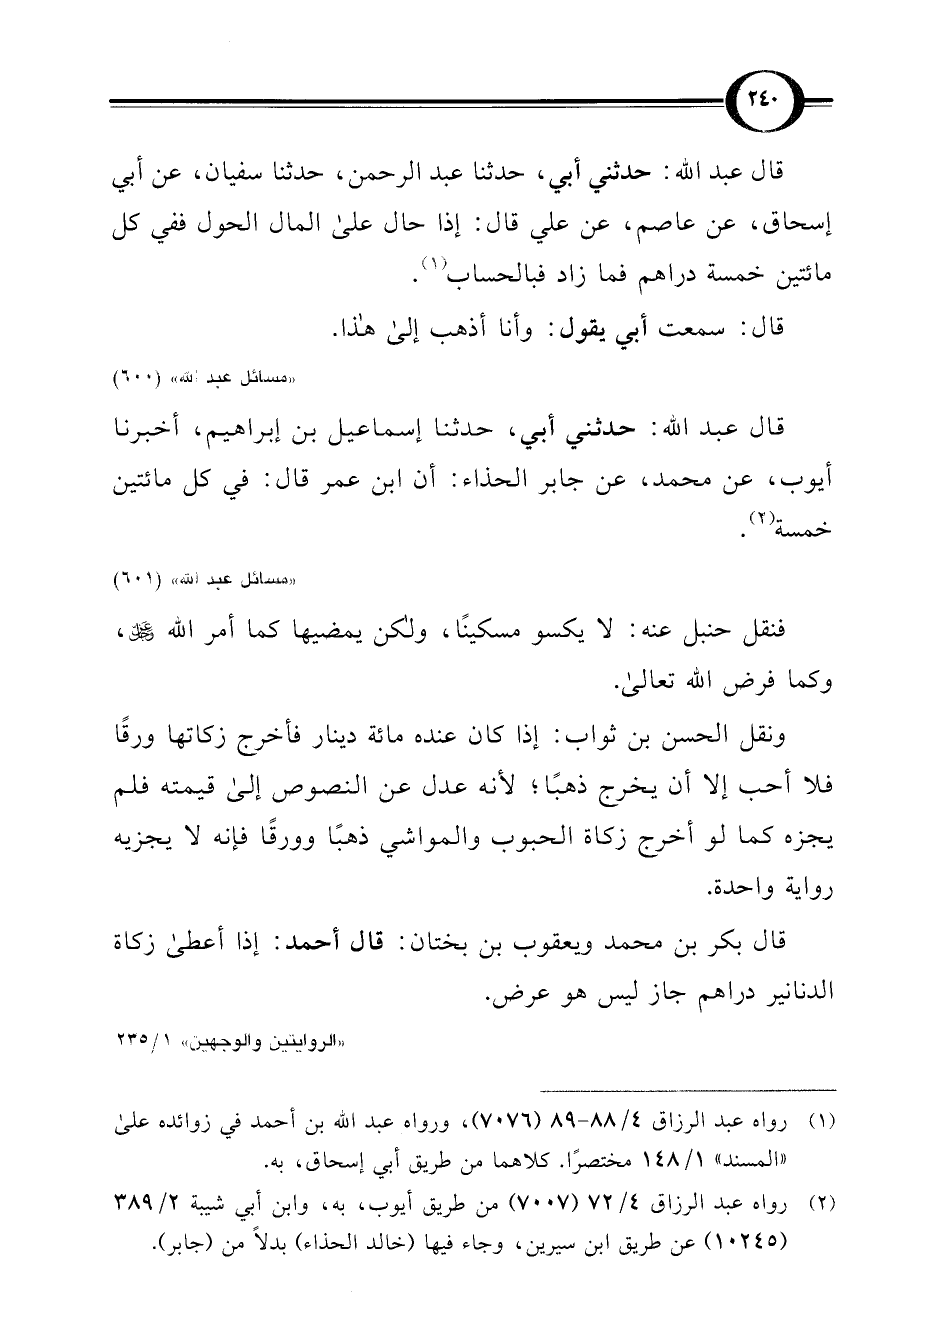 ٢٤٠
قال عبد الله: حدثني أبي، حدثنا عبد الرحمن، حدثنا سفيان، عن أبي
إسحاق، عن عاصم، عن علي قال: إذا حال علىٰ المال الحول ففي كل
مائتين خمسة دراهم فما زاد فبالحساب(١).
قال: سمعت أبي يقول: وأنا أذهب إلىٰ هٰذا.
«مسائل عبد الله» (٦٠٠)
قال عبد الله: حدثني أبي، حدثنا إسماعيل بن إبراهيم، أخبرنا
أيوب، عن محمد، عن جابر الحذاء: أن ابن عمر قال: في كل مائتين
خمسة(٢).
«مسائل عبد الله» (٦٠١)
فنقل حنبل عنه: لا يكسو مسكينًا، ولٰكن يمضيها كما أمر الله ﷿،
وكما فرض الله تعالىٰ.
ونقل الحسن بن ثواب: إذا كان عنده مائة دينار فأخرج زكاتها ورقًا
فلا أحب إلا أن يخرج ذهبًا؛ لأنه عدل عن النصوص إلىٰ قيمته فلم
يجزه كما لو أخرج زكاة الحبوب والمواشي ذهبًا وورقًا فإنه لا يجزيه
رواية واحدة.
قال بكر بن محمد ويعقوب بن بختان: قال أحمد: إذا أعطىٰ زكاة
الدنانير دراهم جاز ليس هو عرض.
«الروايتين والوجهين» ١/ ٢٣٥
(١) رواه عبد الرزاق ٤/ ٨٨-٨٩ (٧٠٧٦)، ورواه عبد الله بن أحمد في زوائده علىٰ
«المسند» ١/ ١٤٨ مختصرًا. كلاهما من طريق أبي إسحاق، به.
(٢) رواه عبد الرزاق ٤/ ٧٢ (٧٠٠٧) من طريق أيوب، به، وابن أبي شيبة ٢/ ٣٨٩
(١٠٢٤٥) عن طريق ابن سيرين، وجاء فيها (خالد الحذاء) بدلاً من (جابر).